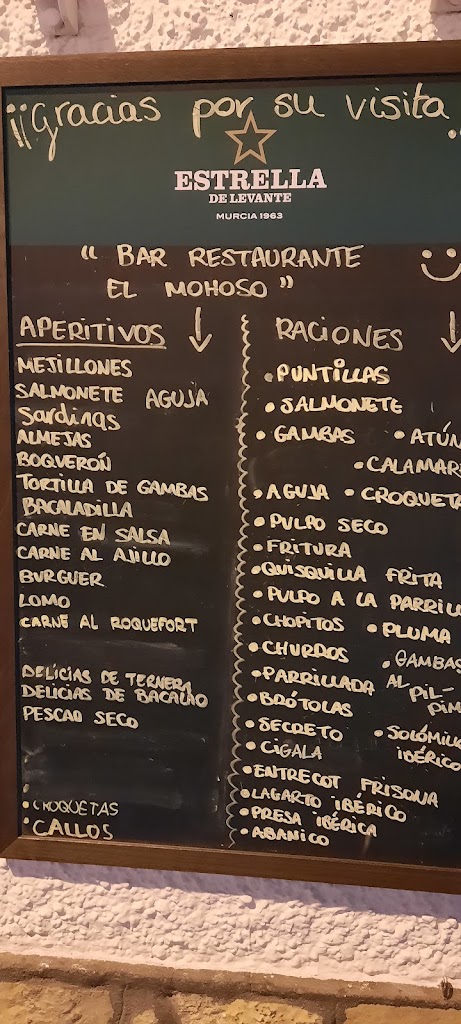 ¡¡Gracias por su visita
ESTRELLA
DE LEVANTE
MURCIA 1963
"BAR RESTAURANTE
EL MOHOSO"
APERITIVOS
MEJILLONES
SALMONETE AGUJA
Sardinas
ALMEJAS
BOQUERÓN
TORTILLA DE GAMBAS
BACALADILLA
CARNE EN SALSA
CARNE AL AJILLO
BURGUER
LOMO
CARNE AL ROQUEFORT
DELICIAS DE TERNERA
DELICIAS DE BACALAO
PESCAO SECO
• CROQUETAS
• CALLOS
RACIONES
• PUNTILLAS
• SALMONETE
• GAMBAS • ATÚN
• CALAMAR
• AGUJA • CROQUETA
• PULPO SECO
• FRITURA
• QUISQUILLA FRITA
• PULPO A LA PARRILL
• CHOPITOS • PLUMA
• CHURROS • GAMBAS
• PARRILLADA AL PIL-
• BRÓTOLAS PIM
• SECRETO • SOLÓMILL
• CIGALA IBÉRICO
• ENTRECOT FRISONA
• LAGARTO IBÉRICO
• PRESA IBÉRICA
• ABANICO